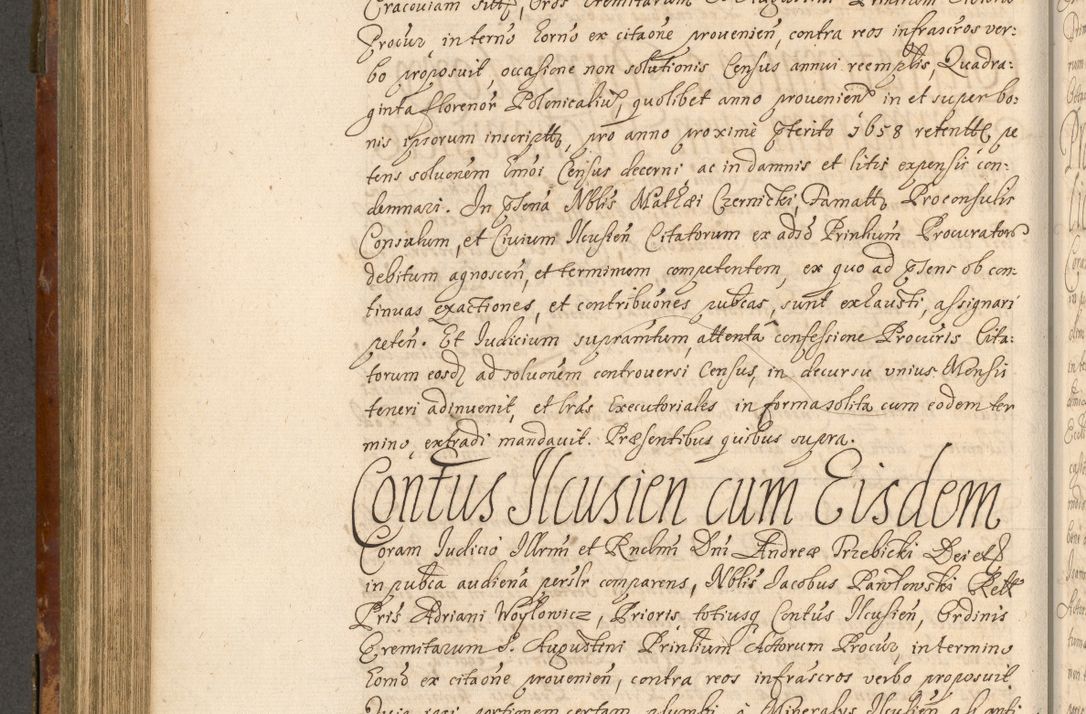 Cracoviam Ordis Eremitarum S. Augustini Prinlium Actorum
Procur, in termo horno ex citaone provenien, contra reos infrascros ver-
bo proposuit, occasione non solutionis Census annui reemptlis, Quadra-
ginta florenor Polonicaliu, quolibet anno provenien in et super bo-
nis ipsorum inscriptt, pro anno proxime pterito 1658 retentt, pe
tens soluonem hmoi Census decerni ac in damnis et litis expensis con-
demnari. In pntia Nblis Mathæi Czernicki, Famatt, Proconsulis
Consulum, et Civium Ilcusien Citatorum ex adso Prinlium Procurator
debitum agnoscen, et terminum competentem, ex quo ad pntens ob con-
tinuas exactiones, et contribuones publicas, sunt exhausti, assignari
peten. Et Iudicium supramtum, attenta confessione Procuris Cita-
torum eosd ad soluonem controversi Census, in decursu unius Mensis
teneri adinvenit, et lras Executoriales in forma solita cum eodem ter
mino, extradi mandavit. Præsentibus quibus supra.
Contus Ilcusien cum Eisdem
Coram Iudicio Illrmi et Rndmi Dni Andreæ Trzebicki Dei et
in publica audiena persler comparens, Nblis Iacobus Pawłowski Rell
Pris Adriani Woyłowicz, Prioris, totiusq Contus Ilcusien, Ordinis
Eremitarum S. Augustini Prinlium Actorum Procur, in termino
horno ex citaone provenien, contra reos infrascros verbo proposuit
portionem certam plumbi, Ilcusien